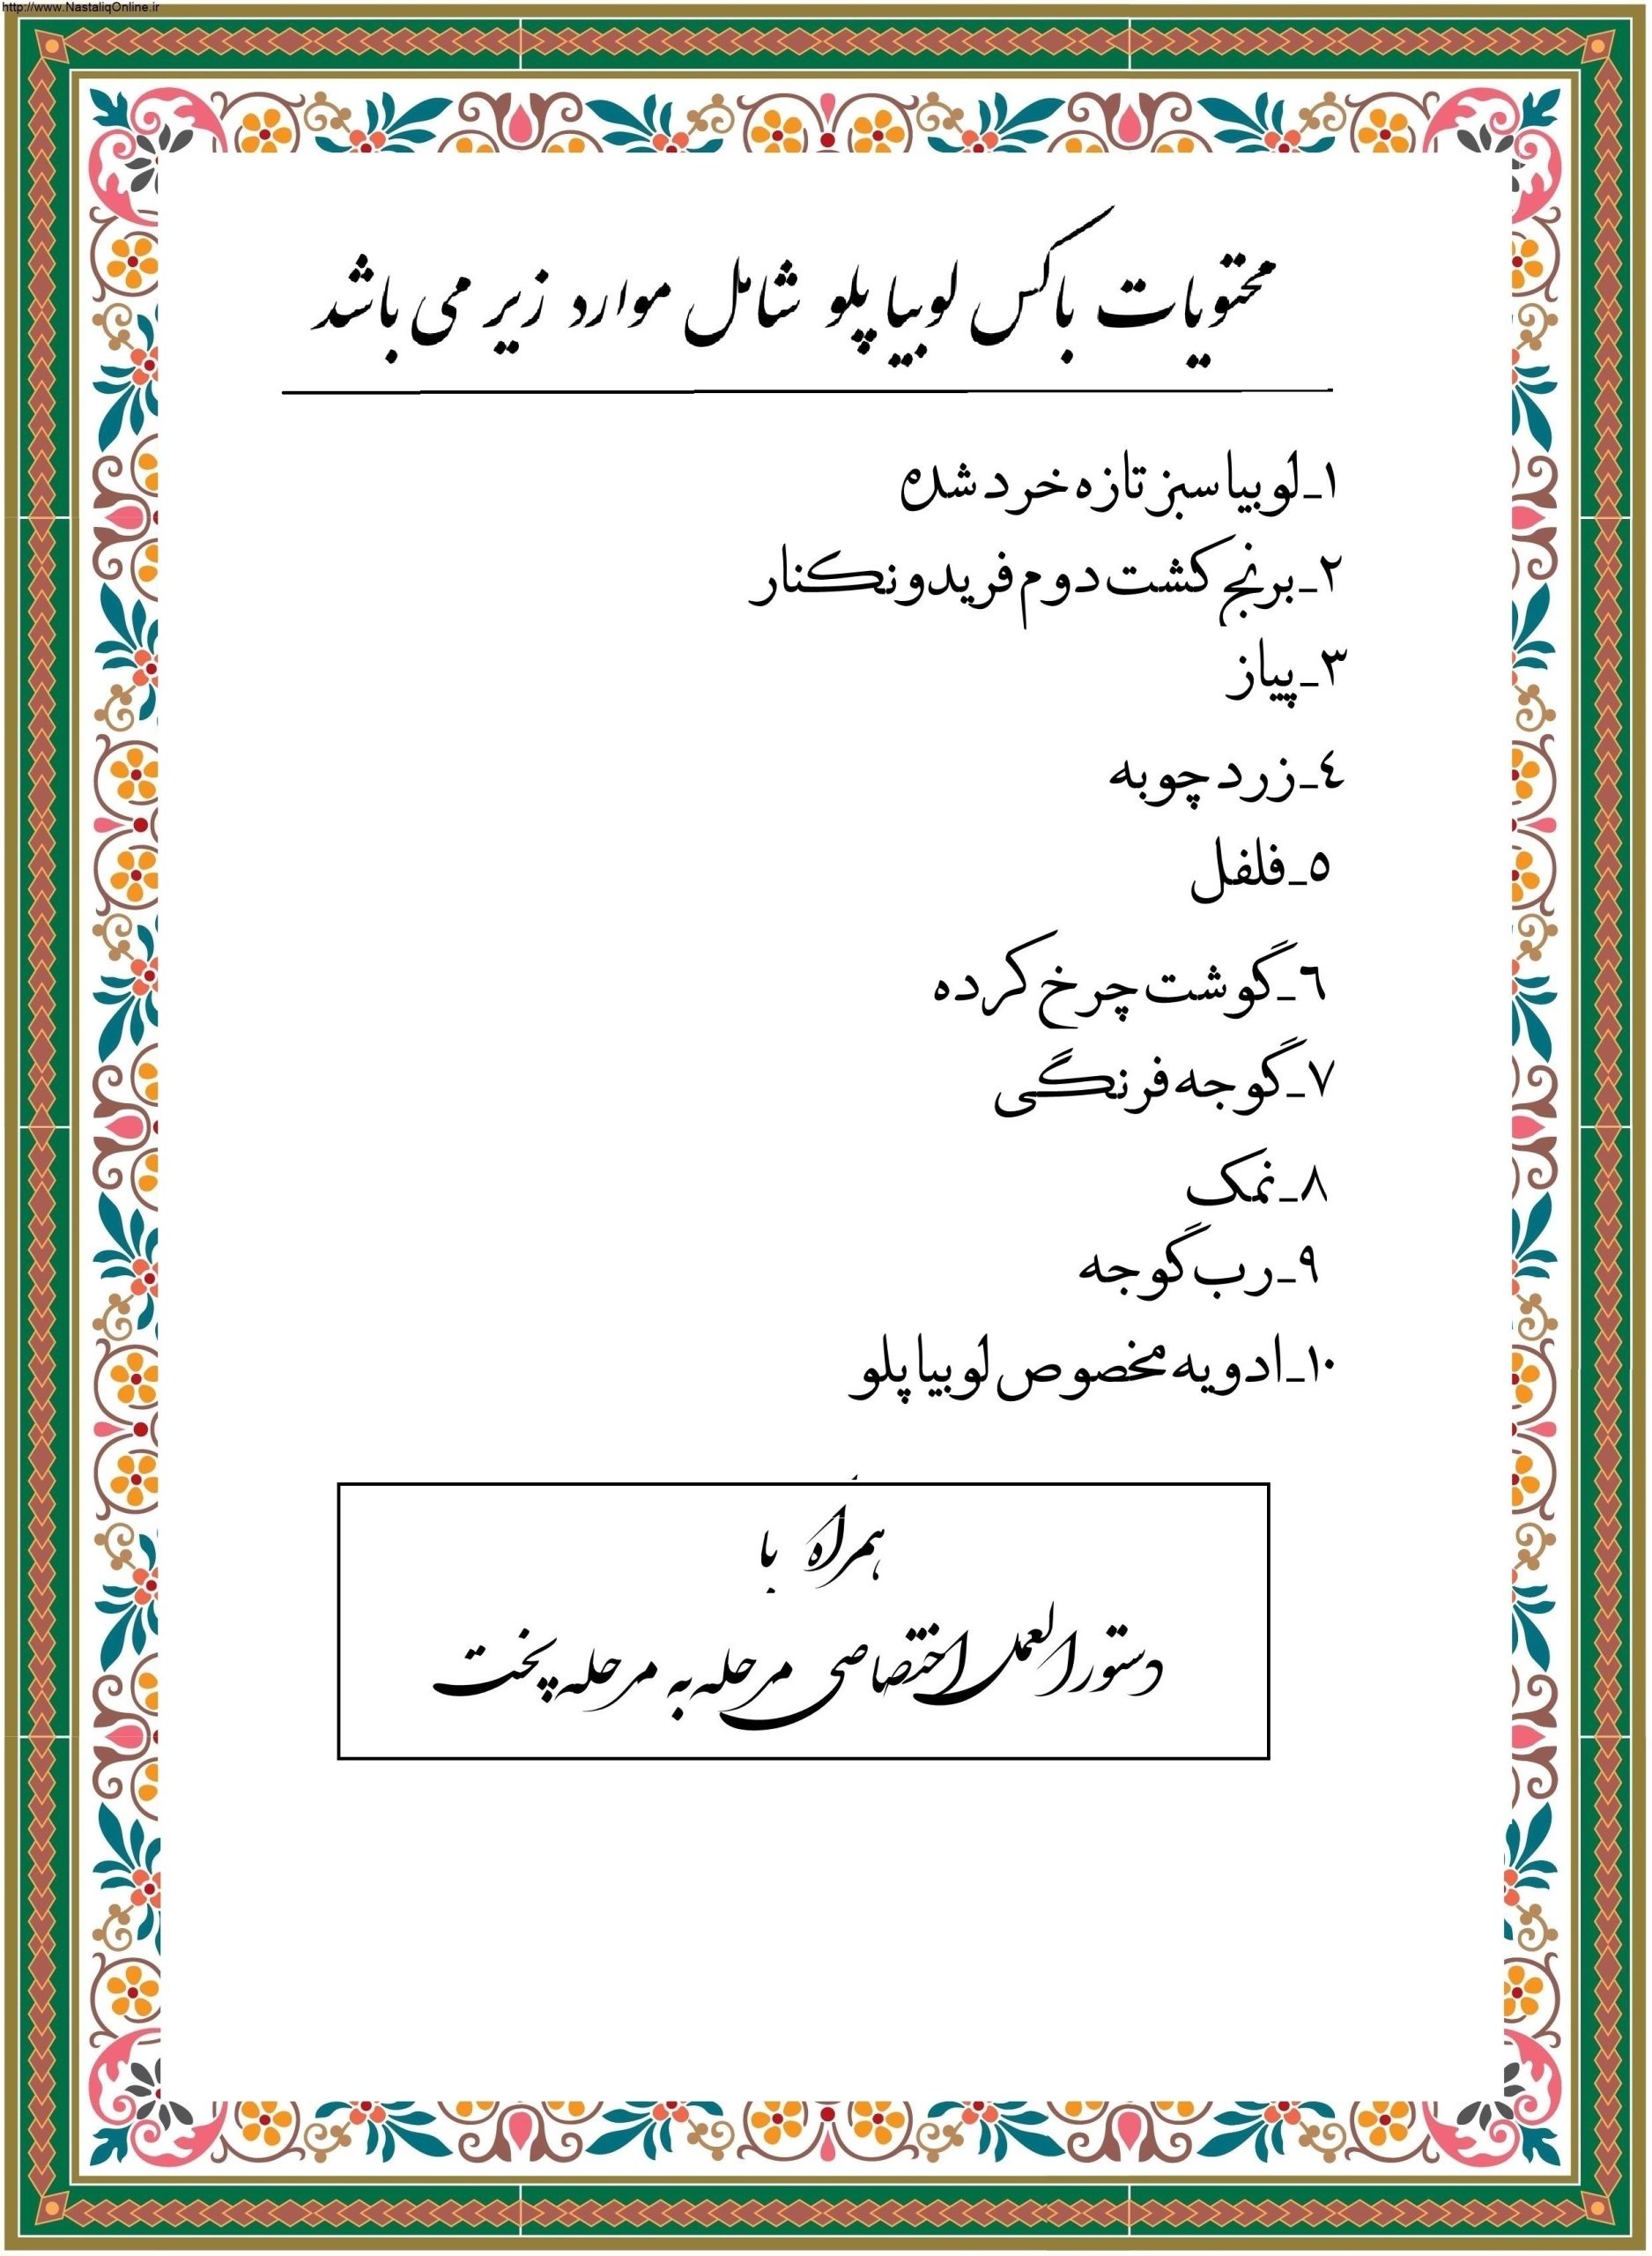 http://www.NastaliqOnline.ir
محتویات باکس لوبیا پلو شامل موارد زیر می باشد
۱_لوبیا سبز تازه خرد شده
۲_برنج کشت دوم فریدونکنار
۳_پیاز
٤_زردچوبه
٥_فلفل
٦_گوشت چرخ کرده
۷_گوجه فرنگی
۸_نمک
۹_رب گوجه
۱۰_ادویه مخصوص لوبیا پلو
همراه با
دستورالعمل اختصاصی مرحله به مرحله پخت